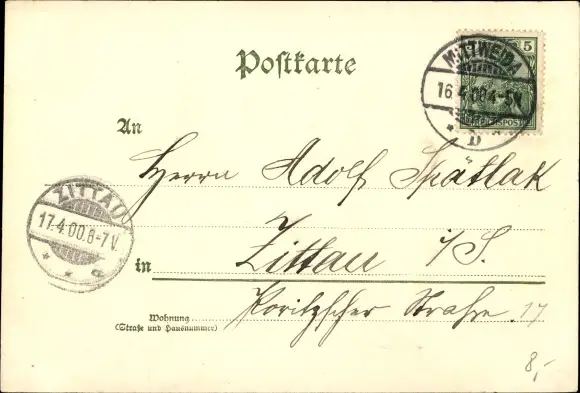 Postkarte
5
REICHSPOST
MITTWEIDA
16.4.00.4-5N.
* D
An
Herrn Adolf Spätlak
ZITTAU
17.4.00.8-7V.
* * c
in Zittau i/S.
Wohnung
(Straße und Hausnummer)
Straße 17
8,-